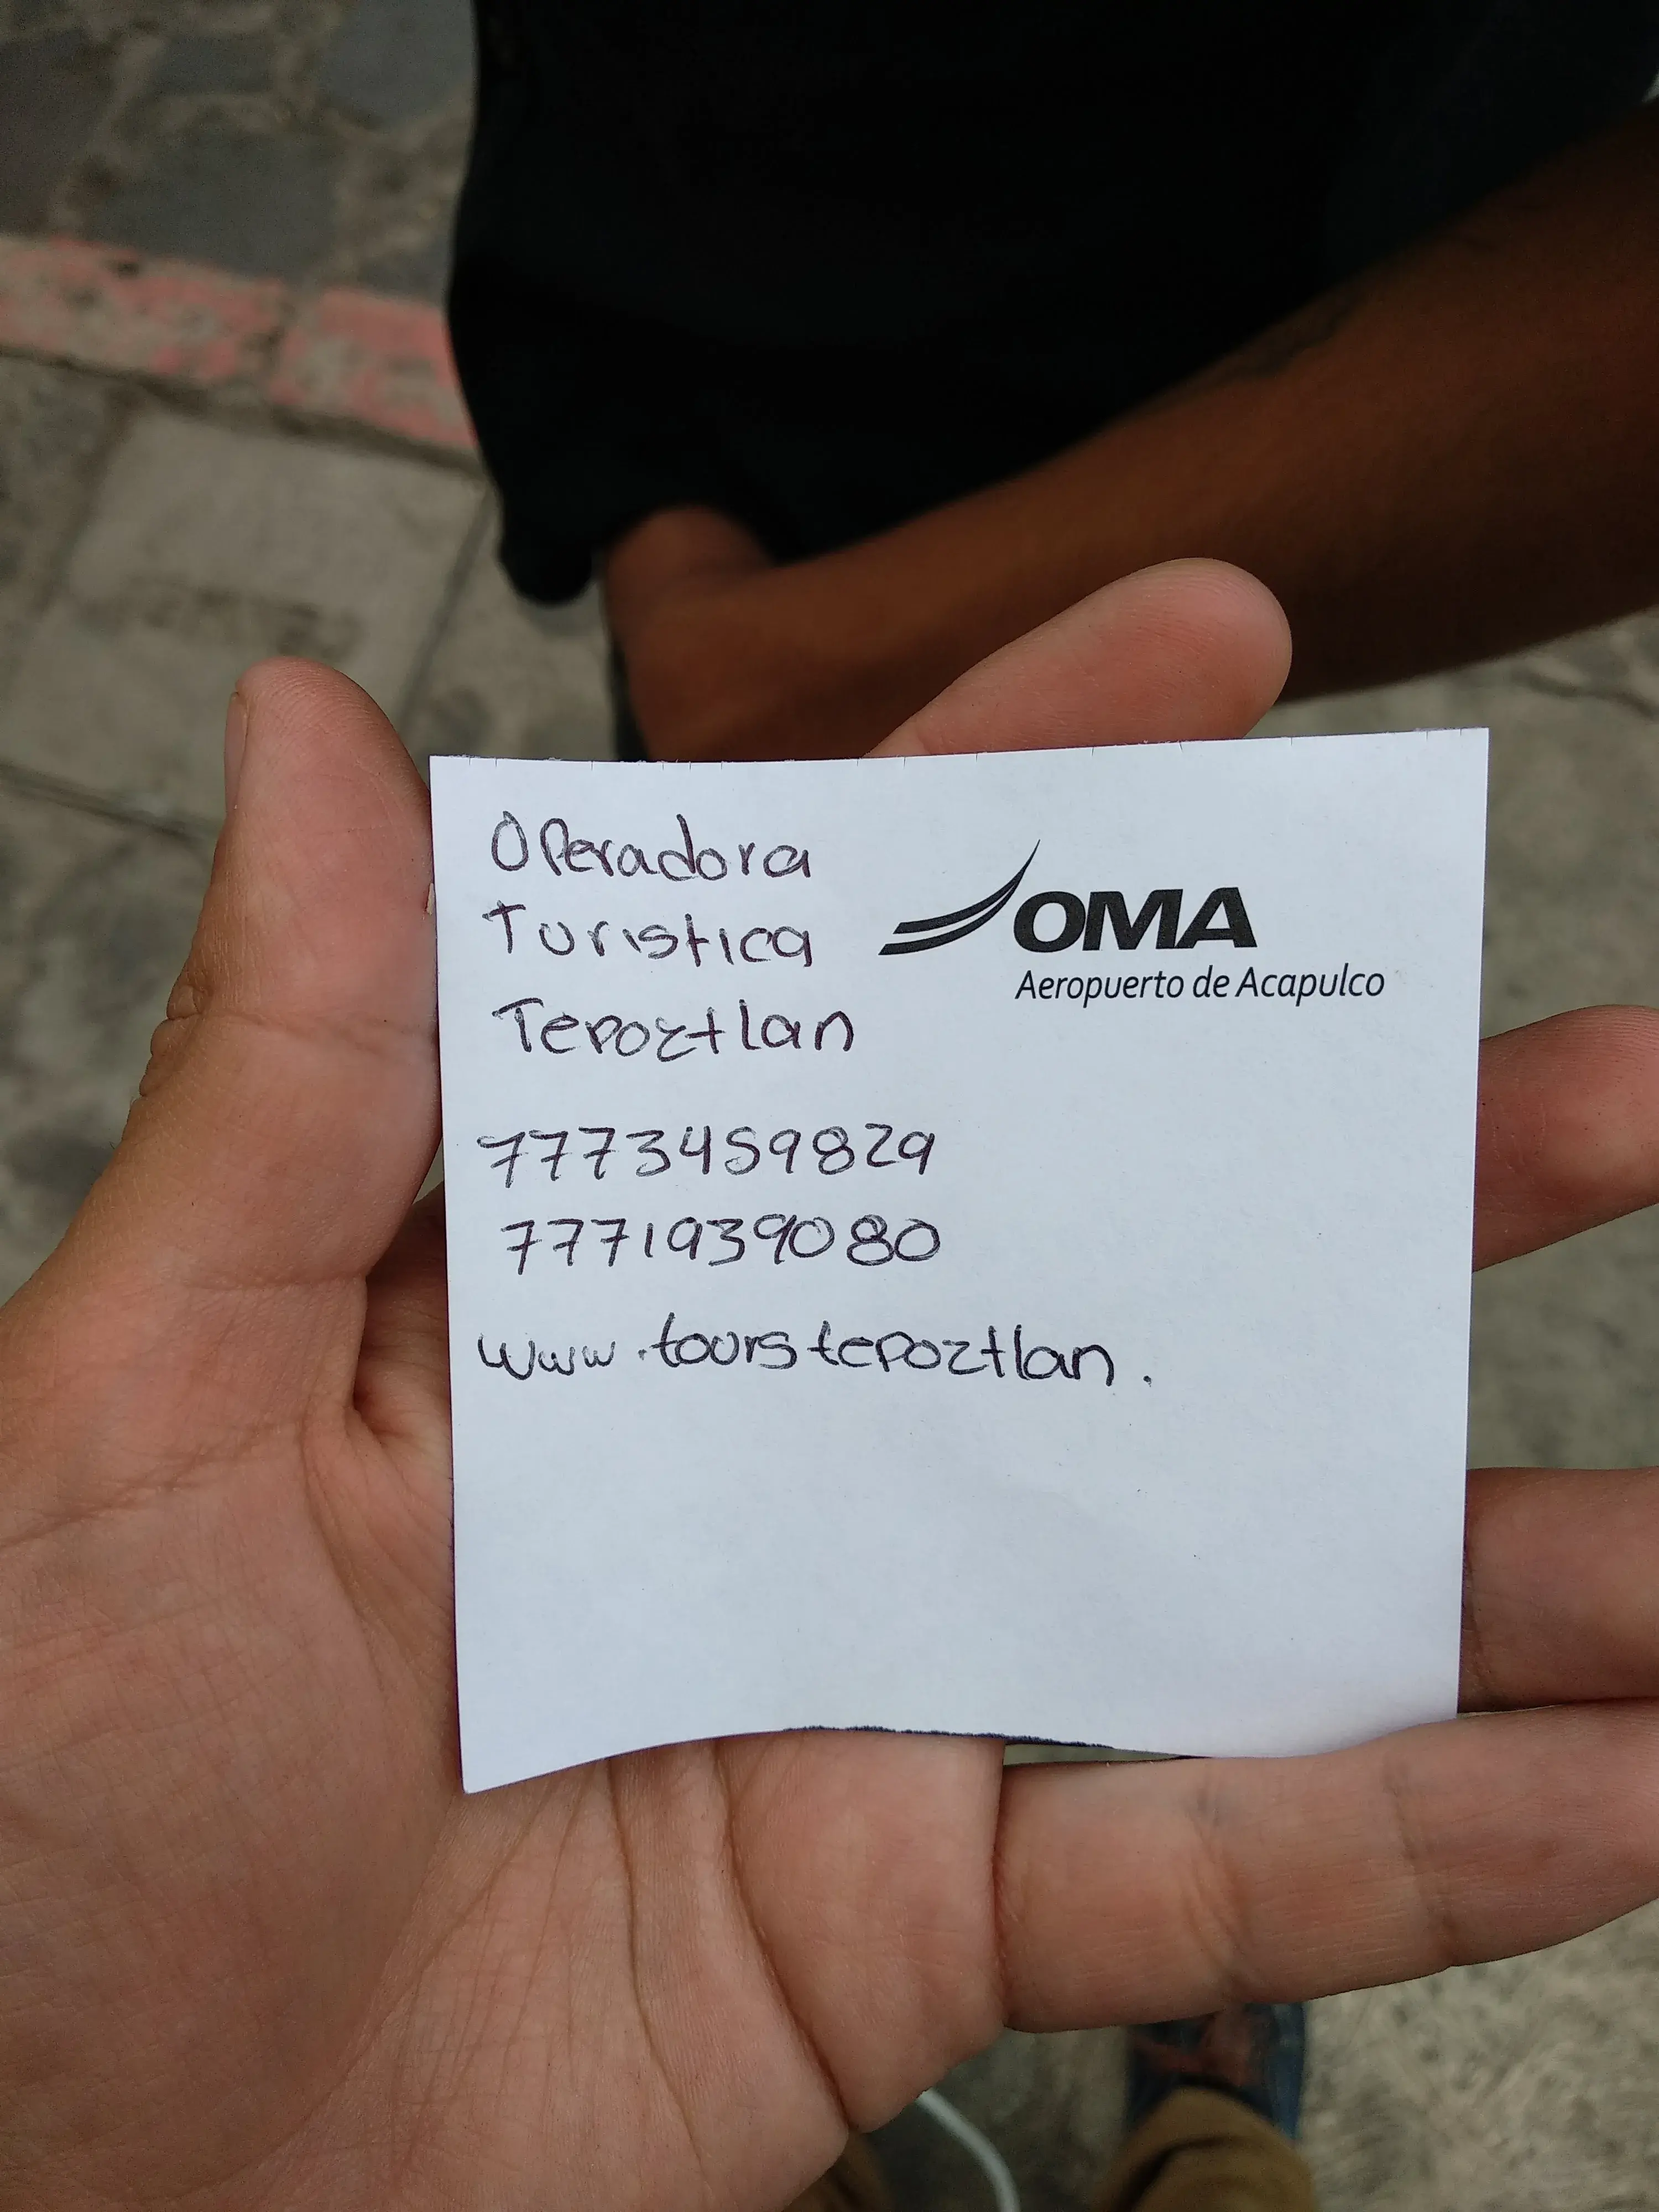 Operadora
Turistica
Tepoztlan
OMA
Aeropuerto de Acapulco
7773459829
7771939080
www.tourstepoztlan.